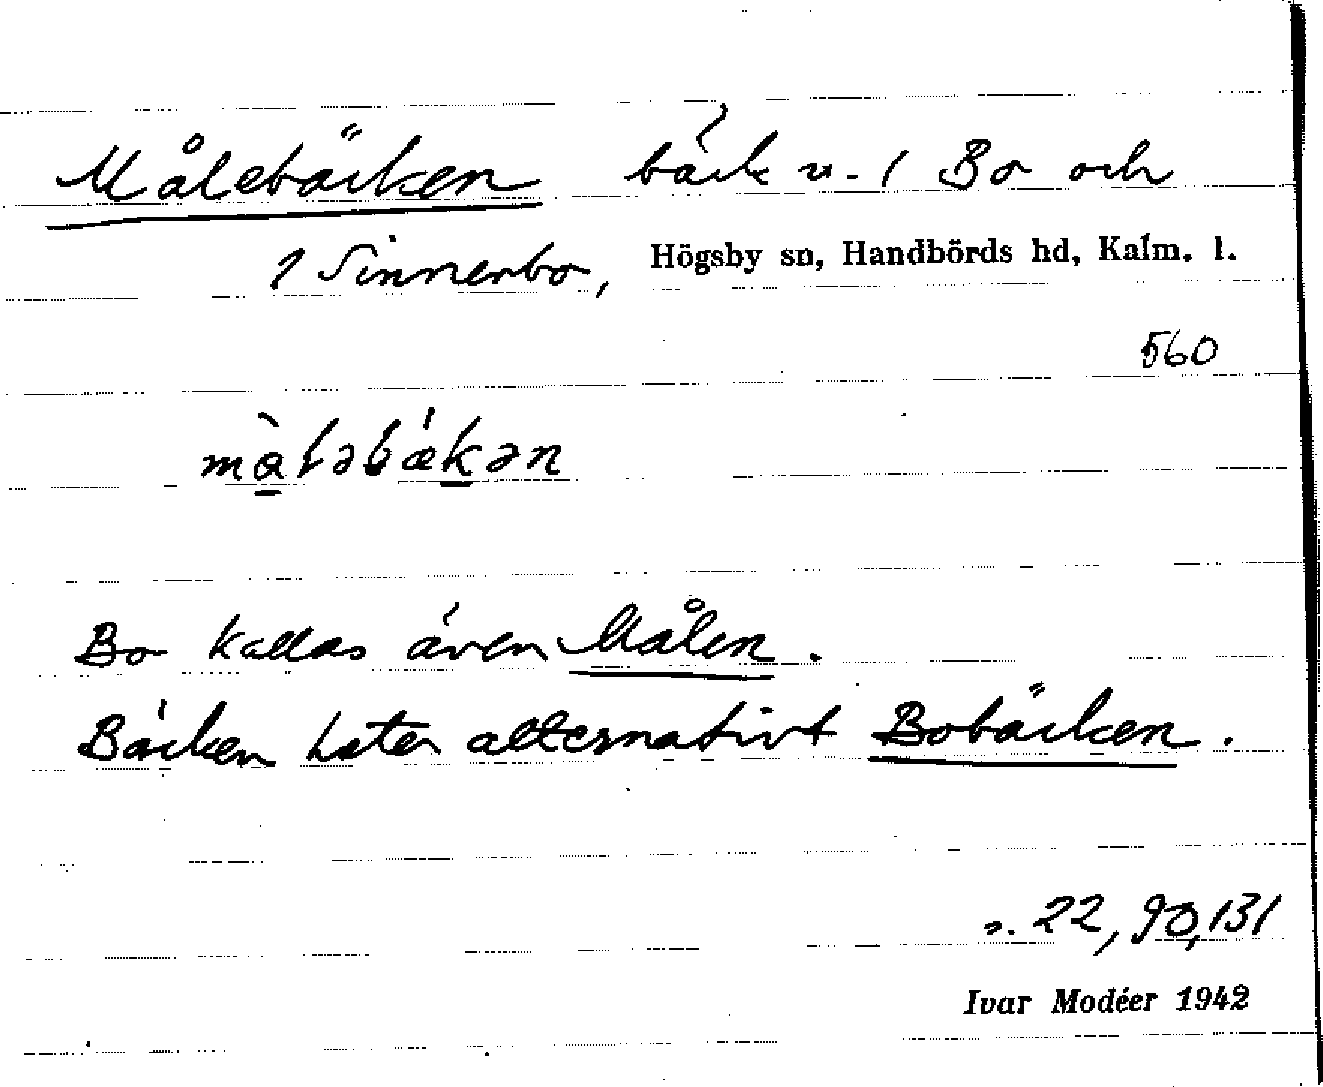 Målebäcken bäck u. 1 Bo och
1 Sinnerbo, Högsby sn, Handbörds hd, Kalm. l.
560
Bo kallas även Målen.
Bäcken heter alternativt Bobäcken.
s. 22, 90, 131
Ivar Modéer 1942